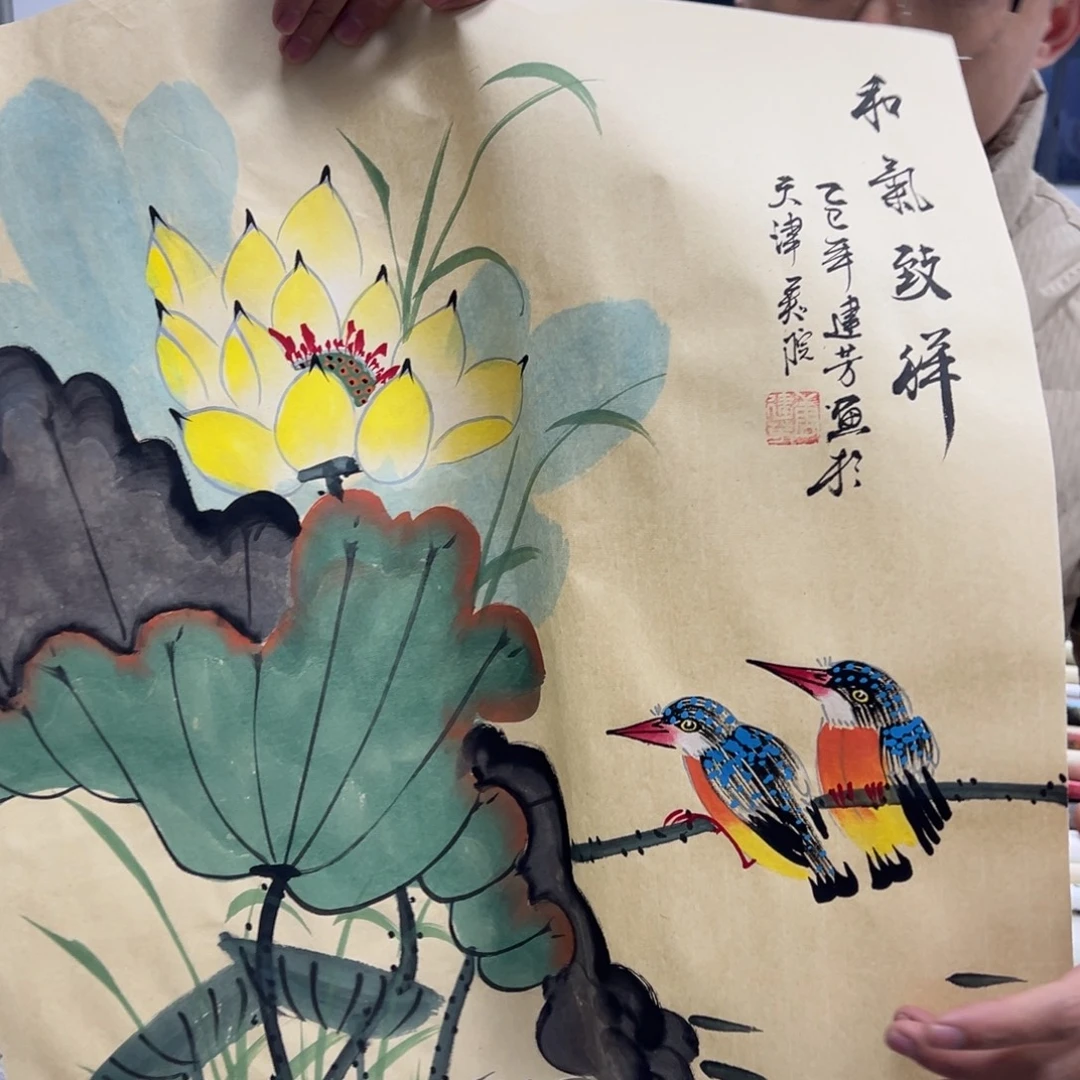 和氣致祥
乙巳年建芳畫於
天津美院